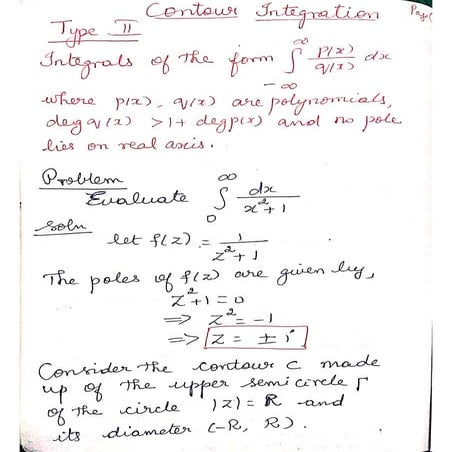 Contour Integration
Page(
Type II
Integrals of the form ∫_{-∞}^{∞} p(x)/q(x) dx
where p(x), q(x) are polynomials,
deg q(x) > 1 + deg p(x) and no pole
lies on real axis.
Problem
Evaluate ∫_0^∞ dx/(x²+1)
Soln
let f(z) = 1/(z²+1)
The poles of f(z) are given by,
z²+1=0
⇒ z² = -1
⇒ z = ±i
Consider the contour C made
up of the upper semicircle Γ
of the circle |z| = R and
its diameter (-R, R).